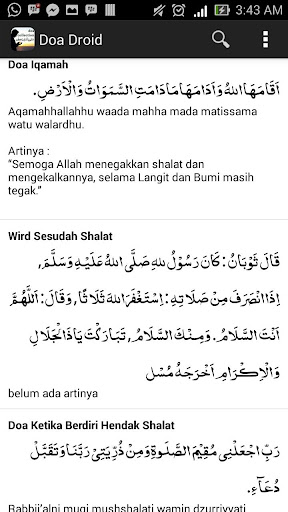 3:43 AM
Doa Droid
Doa Iqamah
اَقَامَهَا اللهُ وَاَدَامَهَا مَادَامَتِ السَّمَوَاتُ وَالْاَرْضِ.
Aqamahhallahhu waada mahha mada matissama
watu walardhu.
Artinya :
“Semoga Allah menegakkan shalat dan
mengekalkannya, selama Langit dan Bumi masih
tegak.”
Wird Sesudah Shalat
قَالَ ثَوْبَانُ : كَانَ رَسُوْلُ للهِ صَلَّى اللهُ عَلَيْهِ وَسَلَّمَ،
اِذَا انْصَرَفَ مِنْ صَلَاتِهِ : اِسْتَغْفَرَ اللهَ ثَلَاثًا، وَقَالَ : اَللّٰهُمَّ
اَنْتَ السَّلَامُ. وَمِنْكَ السَّلَامُ، تَبَارَكْتَ يَاذَا الْجَلَالِ
وَالْاِكْرَامِ اَخْرَجَهُ مُسْل
belum ada artinya
Doa Ketika Berdiri Hendak Shalat
رَبِّ اجْعَلْنِى مُقِيْمَ الصَّلٰوةِ وَمِنْ ذُرِّيَتِىْ رَبَّنَا وَتَقَبَّلْ
دُعَآءِ.
Rabbij’alni muqi mushshalati wamin dzurriyyati